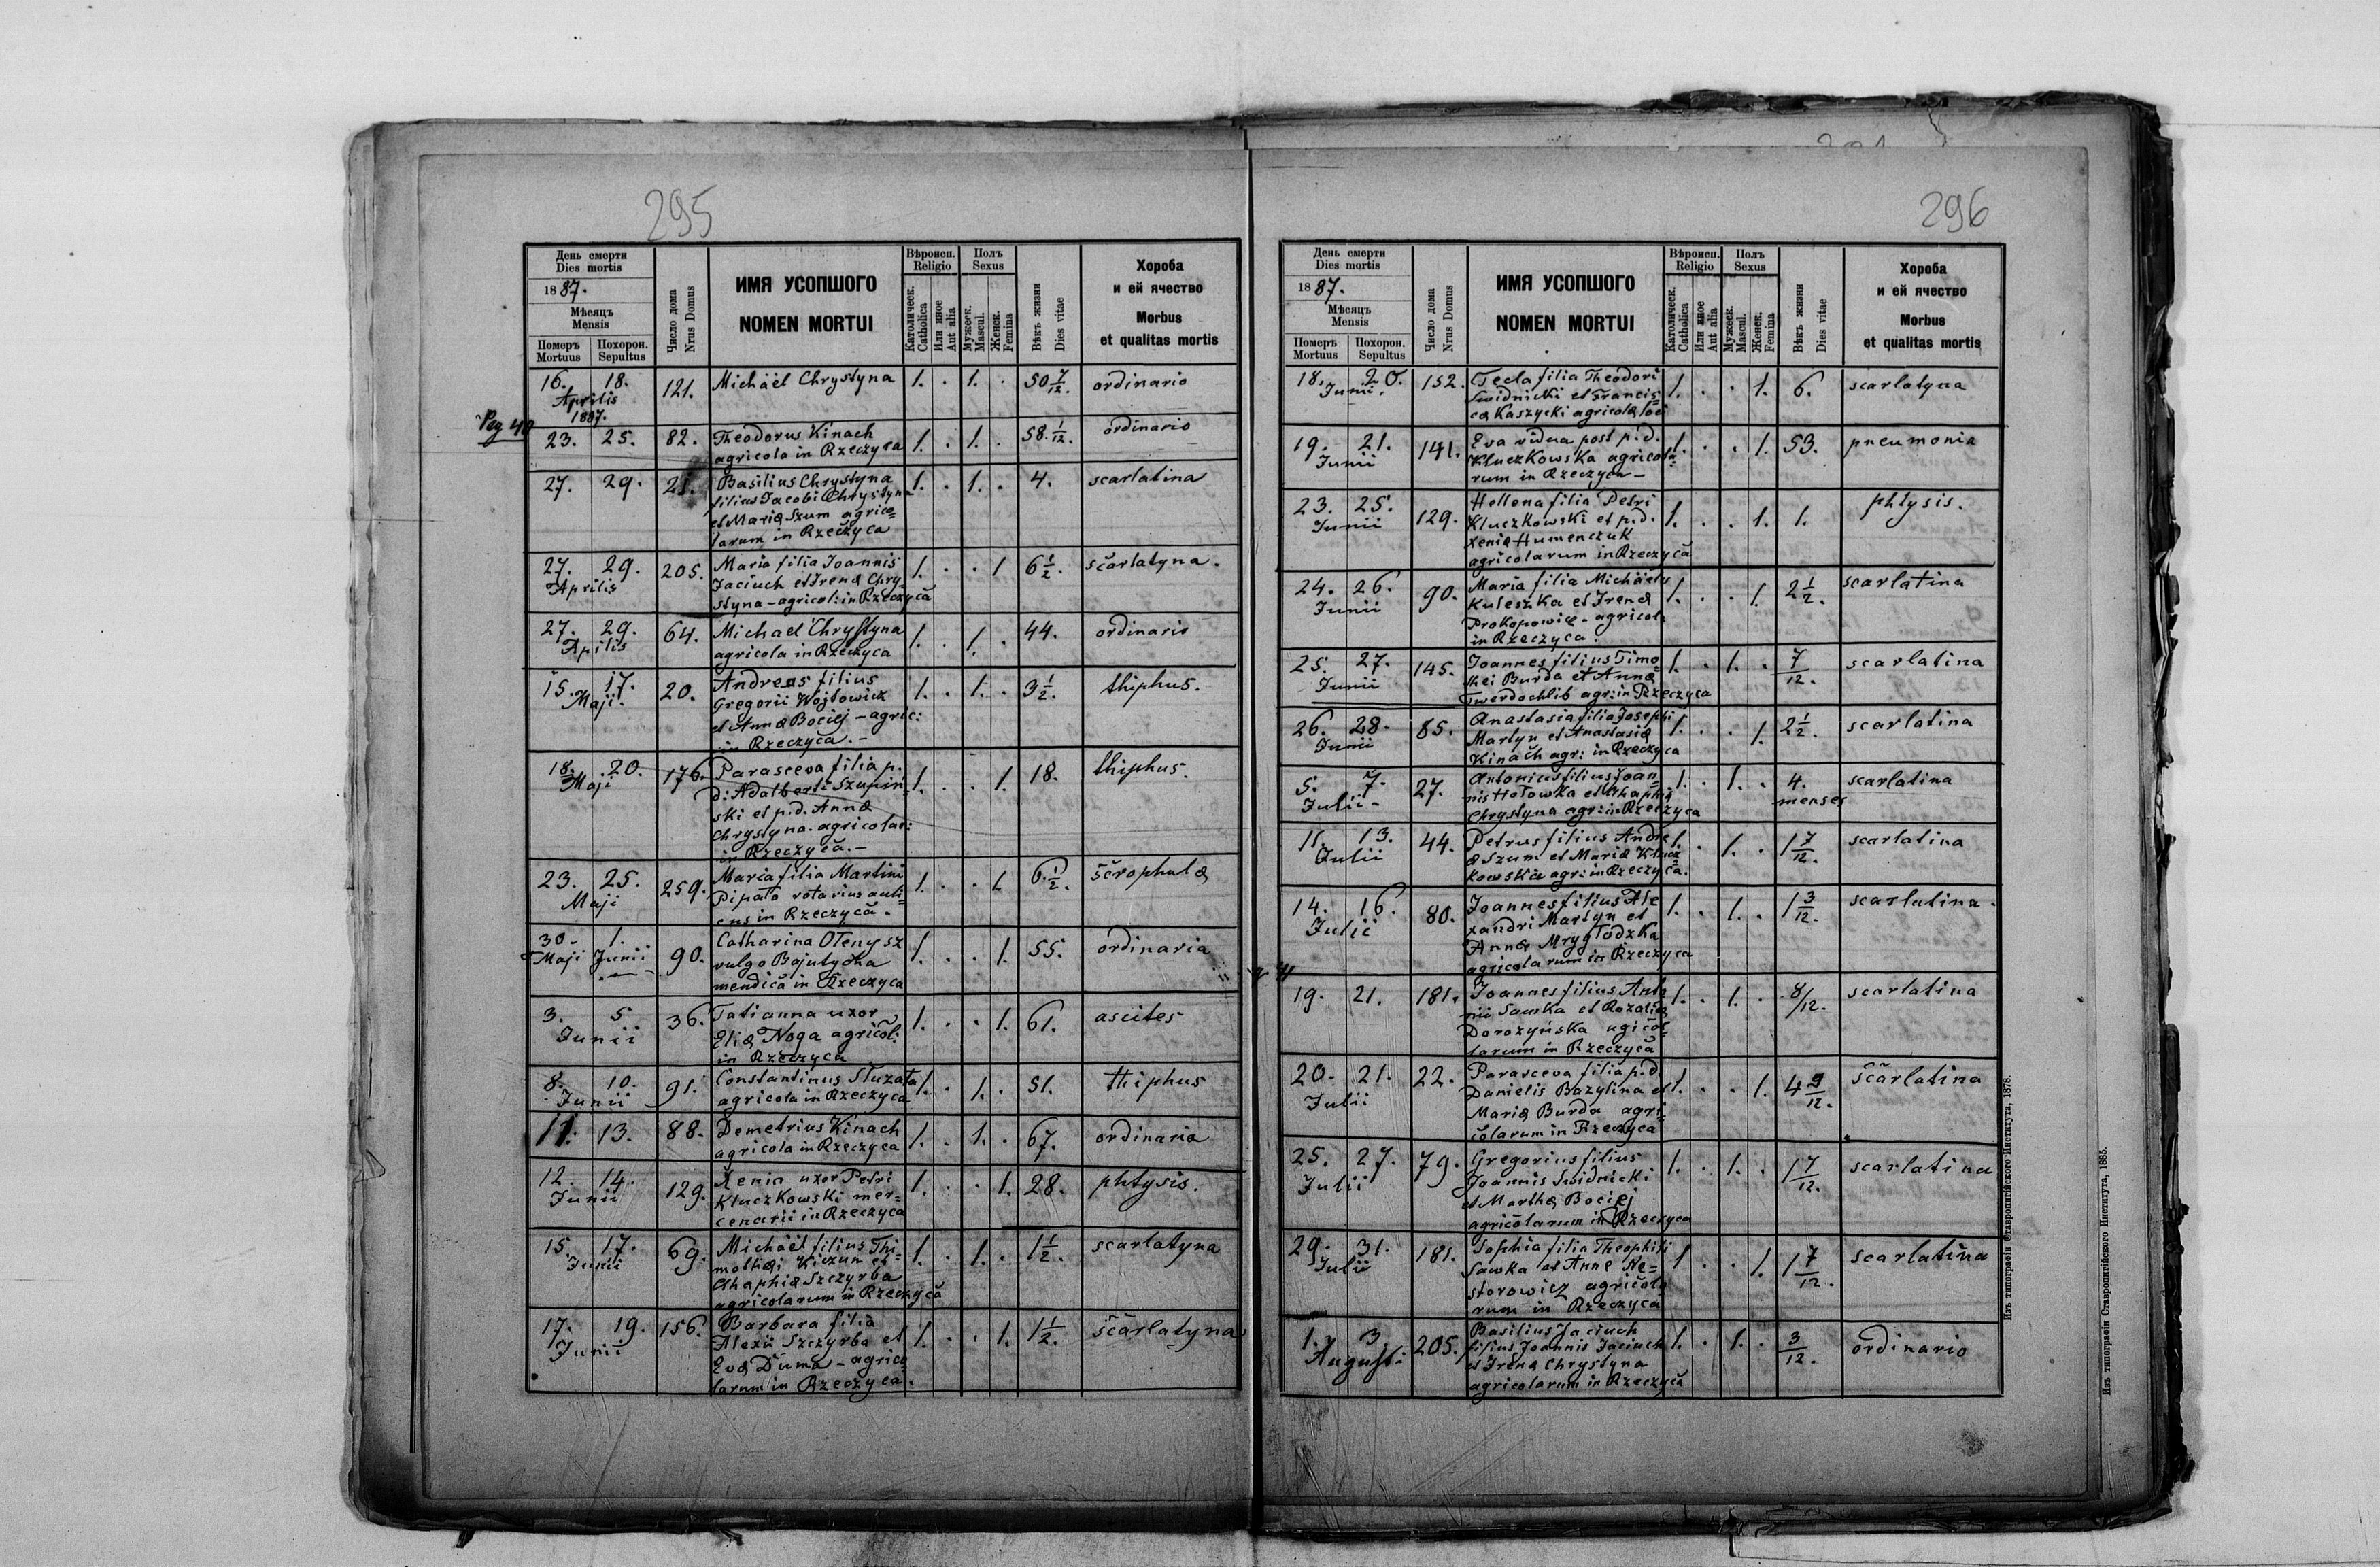 295
День смерти
Dies mortis
1887.
Мѣсяцъ
Mensis
Померъ
Mortuus
Похорон.
Sepultus
Число дома
Nrus Domus
ИМЯ УСОПШОГО
NOMEN MORTUI
Вѣроисп.
Religio
Католическ.
Catholica
Или иное
Aut alia
Полъ
Sexus
Мужеск.
Mascul.
Женск.
Femina
Вѣкъ жизни
Dies vitae
Хороба
и ей ячество
Morbus
et qualitas mortis
16. 18. 121. Michäel Chrystyna 1. . 1. . 50 7/12. ordinario
Aprilis
1887.
Pag 40
23. 25. 82. Theodorus Kinach 1. . 1. . 58. 1/12. ordinario
agricola in Rzeczyca
27. 29. 21. Basilius Chrystyna 1. . 1. . 4. scarlatina
filius Jacobi Chrystyna
et Mariæ Szum agrico=
larum in Rzeczyca
27. 29. 205. Maria filia Joannis 1. . . 1 6 1/2. scarlatyna.
Aprilis Jaciuch et Irenæ Chry-
styna - agricol: in Rzeczyca
27. 29. 64. Michael Chrystyna 1. . 1. . 44. ordinario
Aprilis agricola in Rzeczyca
15. 17. 20. Andreas filius 1. . 1. . 3 1/2. thiphus.
Maji. Gregorii Wojtowicz
et Annæ Bociej - agric:
in Rzeczyca. -
18. 20. 176. Parasceva filia p. 1. . . 1 18. thiphus.
Maji d: Adalberti Szumin=
ski et p.d. Annæ
Chrystyna agricolar:
in Rzeczyca. -
23. 25. 259. Maria filia Martini 1. . . 1 6. 1/2. scrophulæ
Maji Pipało rotarius auli=
cus in Rzeczyca.
30. 1. 90. Catharina Ołenysz 1. . . 1. 55. ordinaria
Maji Junii vulgo Bajutycka
mendica in Rzeczyca
3. 5 36. Tatianna uxor 1. . . 1. 61. ascites
Junii Eliæ Noga agricol:
in Rzeczyca
8. 10. 91. Constantinus Służała 1. . 1. . 51. thiphus
Junii agricola in Rzeczyca
11. 13. 88. Demetrius Kinach 1. . 1. . 67. ordinaria
agricola in Rzeczyca
12. 14. 129. Xenia uxor Petri 1. . . 1. 28. phtysis.
Junii Kluczkowski mer=
cenarii in Rzeczyca
15. 17. 69. Michäel filius Thi= 1. . 1. . 1 1/2. scarlatyna
Junii mothæi Kiczun et
Ahaphiæ Szczyrba
agricolarum in Rzeczyca
17. 19. 156. Barbara filia 1. . . 1. 1 1/2. scarlatyna
Junii Alexii Szczyrba et
Evæ Duma - agrico
larum in Rzeczyca.
296
День смерти
Dies mortis
1887.
Мѣсяцъ
Mensis
Померъ
Mortuus
Похорон.
Sepultus
Число дома
Nrus Domus
ИМЯ УСОПШОГО
NOMEN MORTUI
Вѣроисп.
Religio
Католическ.
Catholica
Или иное
Aut alia
Полъ
Sexus
Мужеск.
Mascul.
Женск.
Femina
Вѣкъ жизни
Dies vitae
Хороба
и ей ячество
Morbus
et qualitas mortis
18. 20. 152. Tecla filia Theodori 1. . . 1. 6. scarlatyna
Junii. Swidnicki et Francis=
cæ Kaszycki agricolæ loci
19. 21. 141. Eva vidua post p.d. 1. . . 1. 53. pneumonia
Junii Kluczkowska agricola=
rum in Rzeczyca -
23. 25. 129. Hellena filia Petri 1. . . 1. 1. phtysis.
Junii Kluczkowski et p.d.
Xeniæ Humenczuk
agricolarum in Rzeczyca
24. 26. 90. Maria filia Michäelis 1. . . 1. 2 1/2. scarlatina
Junii Kuleszka et Irenæ
Prokopowicz - agricol:
in Rzeczyca.
25. 27. 145. Joannes filius Timo= 1. . 1. . 7/12. scarlatina
Junii thei Burda et Annæ
Twerdochlib agr: in Rzeczyca
26. 28. 85. Anastasia filia Josephi 1. . . 1. 2 1/2. scarlatina
Junii Martyn et Anastasiæ
Kinach agr: in Rzeczyca
5. 7. 27. Antonius filius Joan= 1. . 1. . 4. scarlatina
Julii - nis Hołowka et Ahaphiæ menses
Chrystyna agr: in Rzeczyca
11. 13. 44. Petrus filius Andre 1. . 1. . 1 7/12. scarlatina
Julii æ Szum et Mariæ Klucz
kowska agr: in Rzeczyca.
14. 16. 80. Joannes filius Ale 1. . 1. . 1 3/12. scarlatina.
Julii xandri Martyn et
Annæ Mrygłodzka
agricolarum in Rzeczyca
19. 21. 181. Joannes filius Anto 1. . 1. . 8/12. scarlatina
nii Sawka et Rozaliæ
Dorozyńska agicol=
larum in Rzeczyca
20. 21. 22. Parasceva filia p.d. 1. . . 1. 4 9/12. scarlatina
Julii Danielis Bazylina et
Mariæ Burda agri=
colarum in Rzeczyca
25. 27. 79. Gregorius filius 1. . 1. . 1 7/12. scarlatina
Julii Joannis Swidnicki
et Marthæ Bociej
agricolarum in Rzeczyca
29. 31. 181. Sophia filia Theophili 1 . . 1. 1 7/12. scarlatina
Julii Sawka et Anne Ne=
storowicz agricola
rum in Rzeczyca
1. 3. 205. Basilius Jaciuch 1. . 1. . 3/12. ordinario
Augusti filius Joannis Jaciuch
et Irenæ Chrystyna
agricolarum in Rzeczyca
Изъ типографіи Ставропигійского Института, 1878.
Изъ типографіи Ставропигійского Института, 1885.